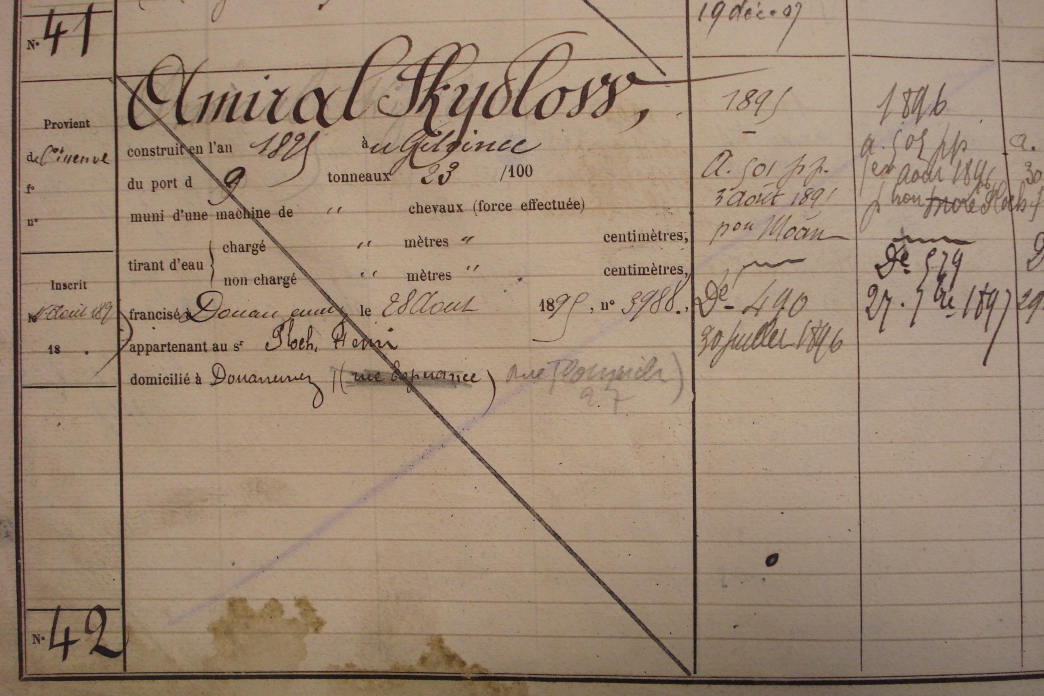 N° 41
19 déc. 97
Amiral Skydloss,
Provient
de
f°
n°
construit en l'an 1895 à
du port d 9 tonneaux 23 /100
muni d'une machine de " chevaux (force effectuée)
tirant d'eau { chargé " mètres " centimètres,
non chargé " mètres " centimètres,
Inscrit
18
francisé à Douarnenez, le 28 Août 1895, n° 3988.
appartenant au sr Ploch, Henri
domicilié à Douarnenez (rue Espérance) rue
27
1895
a. 501 pp.
3 août 1895
pour Moan
De 490
30 juillet 1896
1896
a. 505 pp
août 1896
De 579
27. 7bre 1897
N° 42